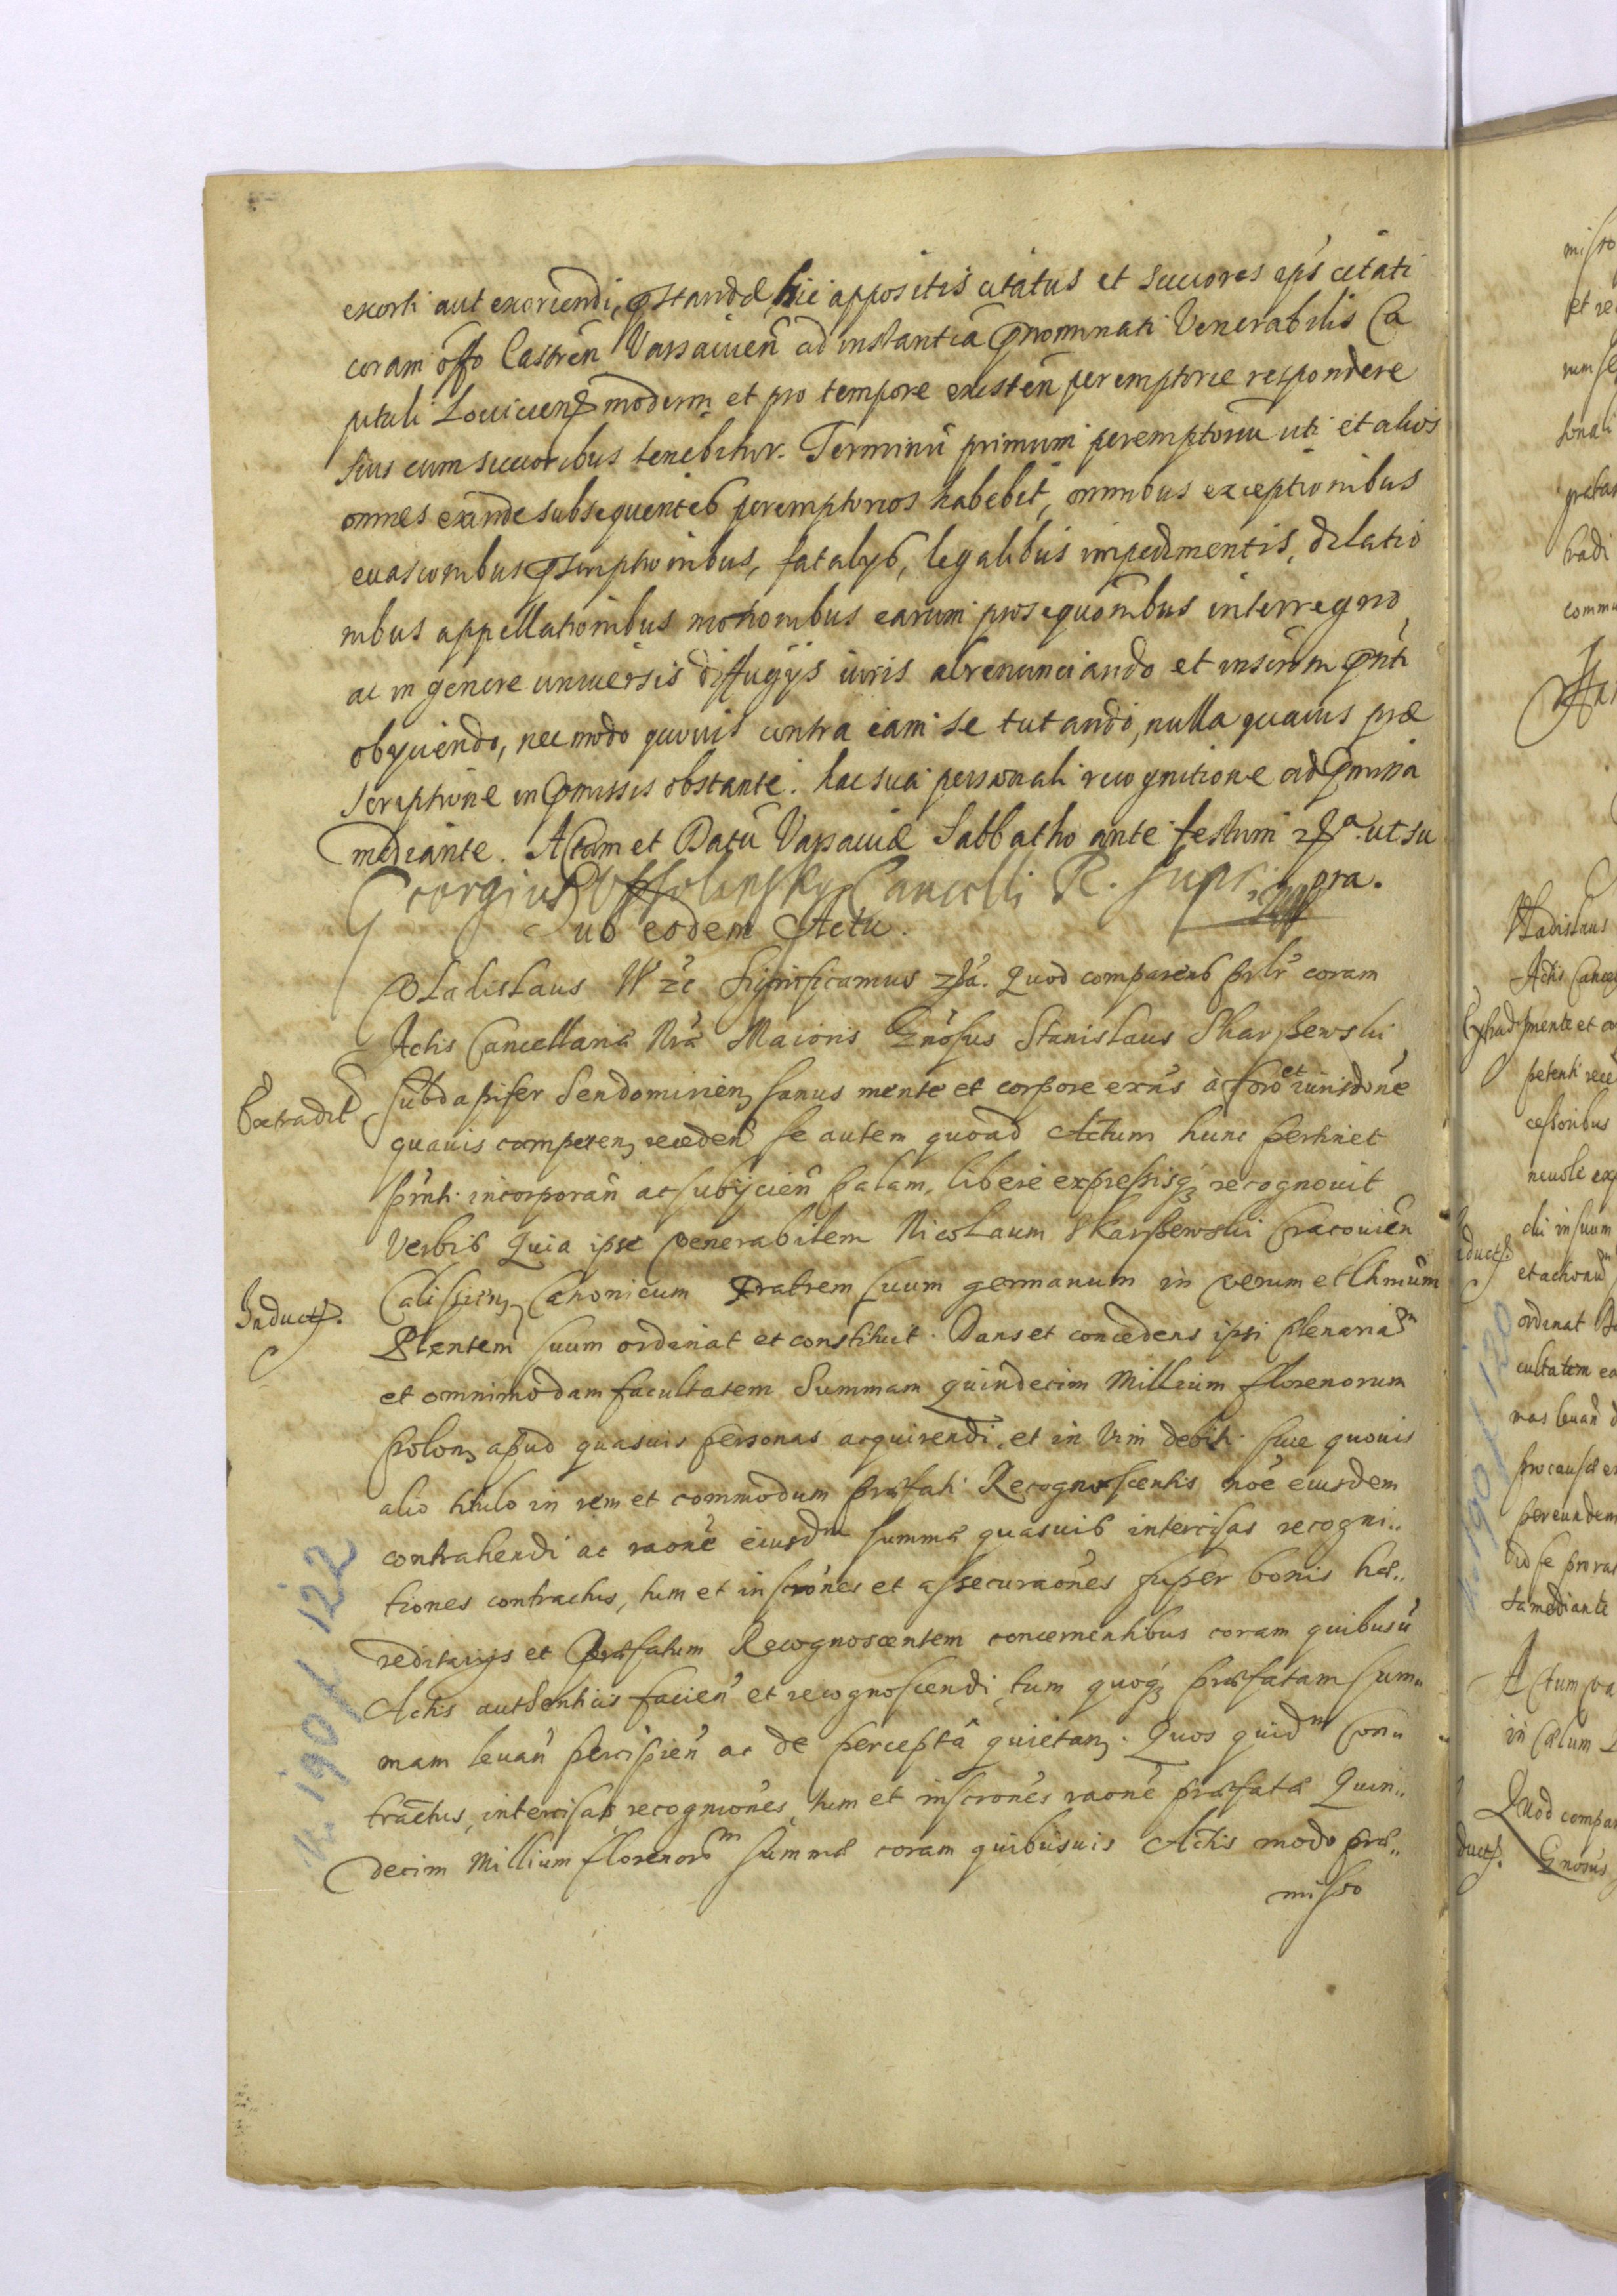 exorti aut exoriendi, pstandae, hic appositis citatus et succores eps citati
coram offo Castren Varsavien ad instantiā pnominati Venerabilis Ca
pituli Lovicien modern et pro tempore existen peremptorie respondere
suis cum succoribus tenebitur. Terminū primum peremptoriū uti et alios
omnes exinde subsequentes peremptorios habebit, omnibus exceptionibus
evasionibus pscriptionibus, fatalijs, legalibus impedimentis, dilatio
nibus appellationibus motionibus earum prosequōnibus interregno,
ac in genere universis diffugijs iuris abrenunciando et inscrōm pnti
obijciendo, nec modo quovis contra eam se tutando, nulla quavis prae
scriptione in pmissis obstante. hac sua personali recognitione ad pmissa
mediante. Actum et Datū Varsaviae Sabbatho ante festum ut su
pra.
Georgius Ossolinsky Cancelli R. Supr. mp
Sub eodem Actu.
Vladislaus IV &c Significamus &a. Quod comparens prlr coram
Actis Cancellariae Nrae Maioris Gnosus Stanislaus Skarszewski
Extradit
Subdapifer Sendomirien sanus mente et corpore exns à foro et iurisdone
quavis competen, receden se autem quoad Actum hunc pertinet
prnti incorporan ac subijcien palam, libere expressisq recognovit
Verbis Quia ipse Venerabilem Nicolaum Skarszewski Cracovien
Induct.
Calissien Canonicum Fratrem suum germanum in verum et lthmum
Plentem suum ordinat et constituit. Dans et concedens ipsi plenariam
et omnimodam facultatem Summam quindecim Millium florenorum
polon apud quasuis personas acquirendi, et in Vim debiti sive quovis
alio titulo in rem et commodum praefati Recognoscentis noe eiusdem
contrahendi ac raone eiusdm summae quasuis intercisas recogni..
tiones contractus, tum et inscrones et assecuraones super bonis hae..
reditarijs et Praefatum Recognoscentem concernentibus coram quibusu
Actis authenticis facien et recognoscendi, tum quoq praefatam sum..
mam levan percipien ac de percepta quietan. Quos quidm Con..
tractus, intercisas recogniones, tum et inscrones raone praefatae Quin..
decim Millium florenorm summae coram quibusuis Actis modo prae..
misso
N. 190/ 122